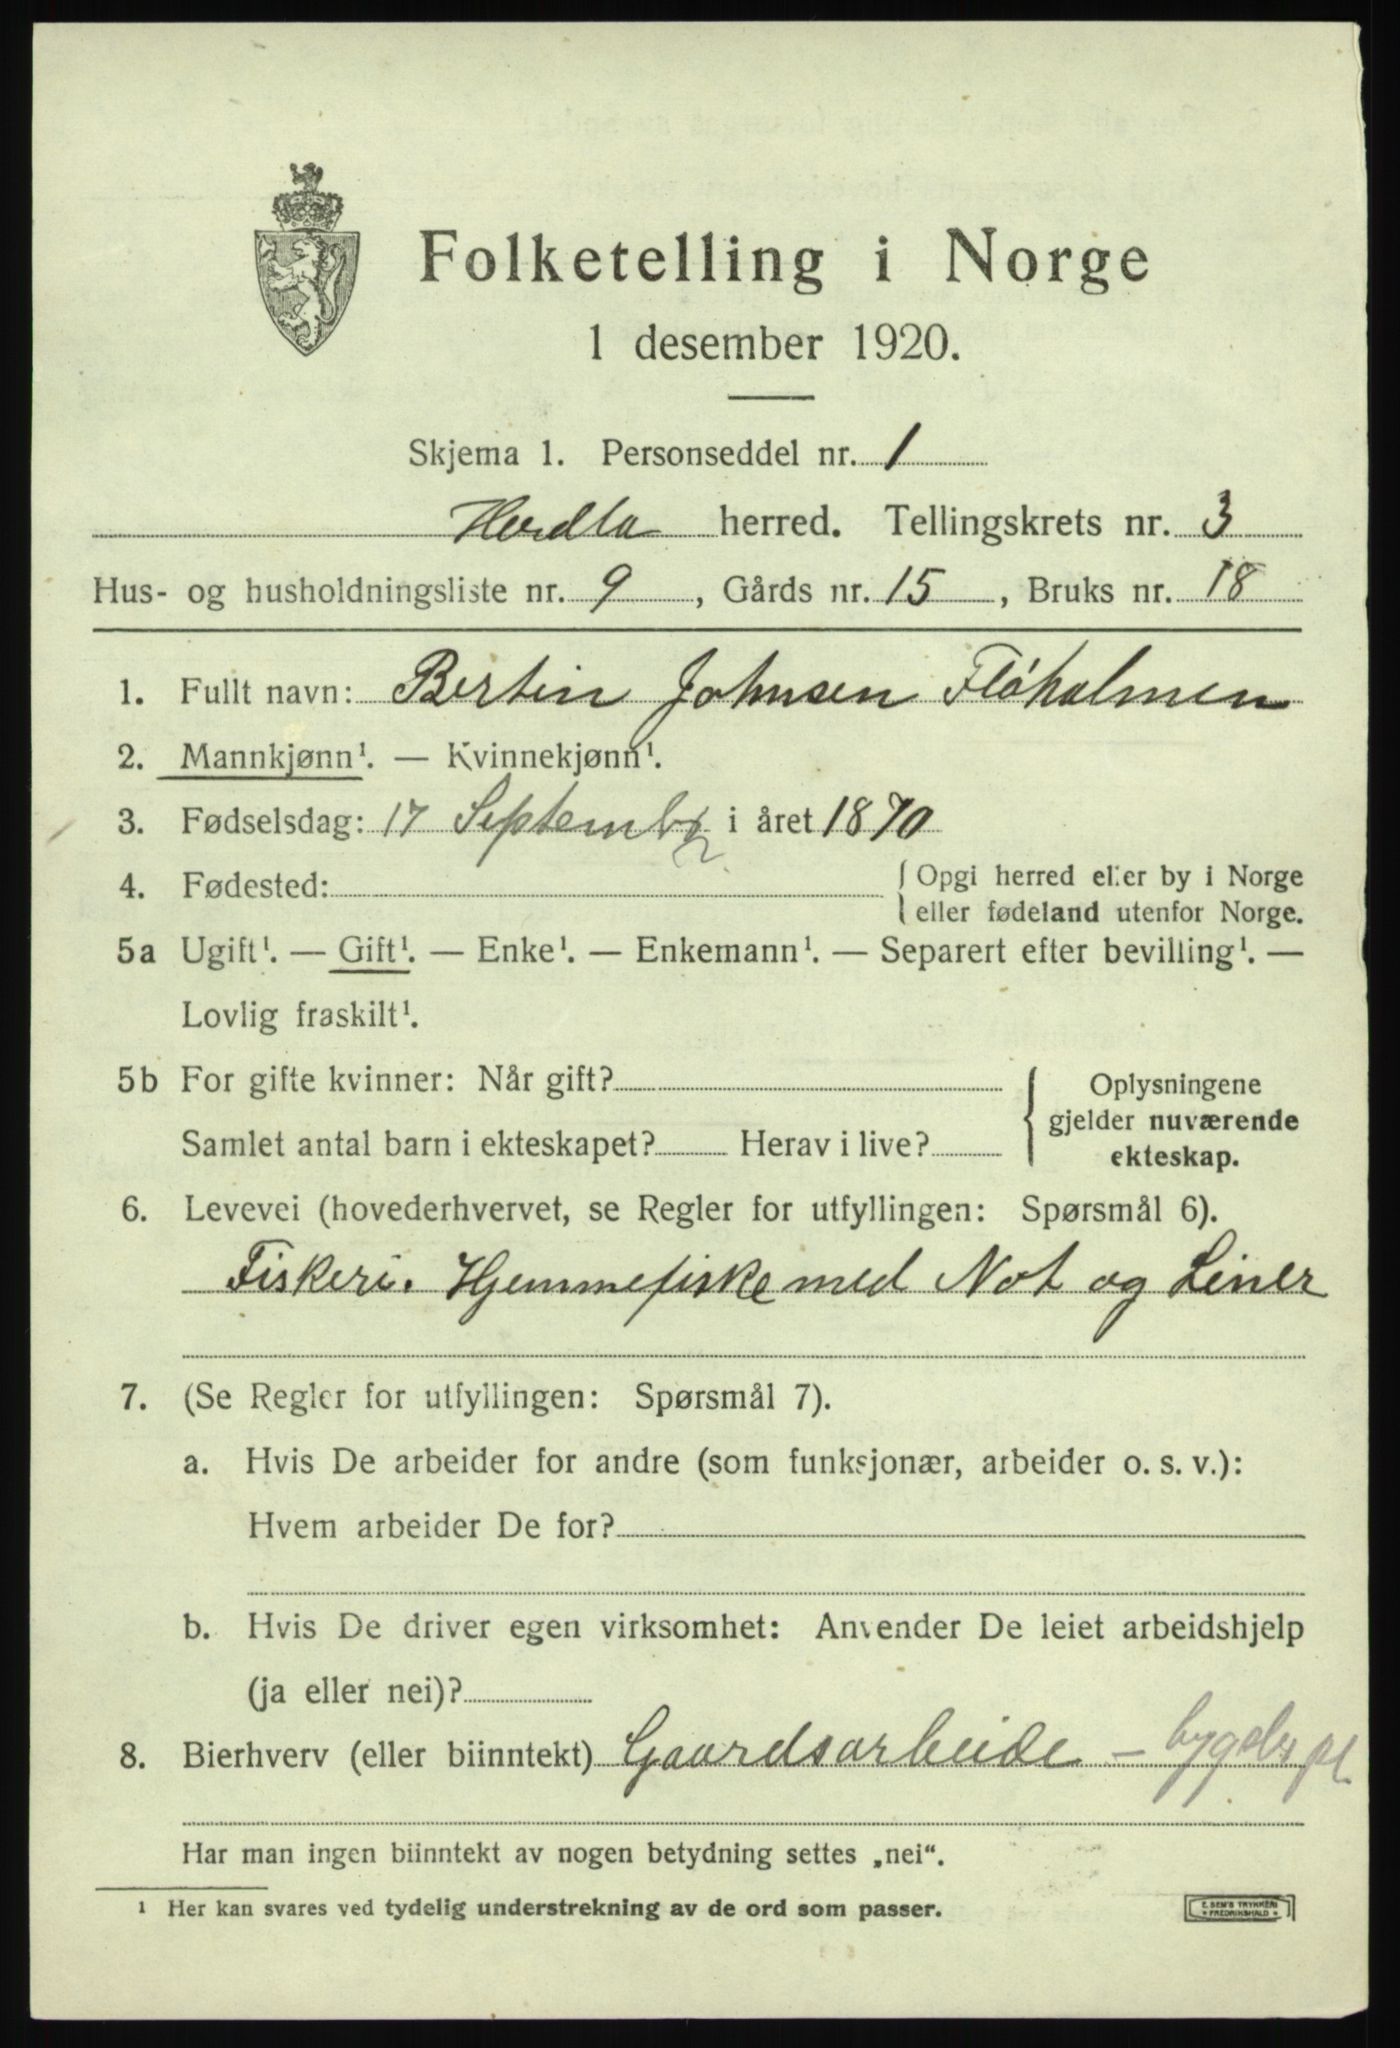 Folketelling i Norge
1 desember 1920.
Skjema 1. Personseddel nr. 1
Herdla herred. Tellingskrets nr. 3
Hus- og husholdningsliste nr. 9, Gårds nr. 15, Bruks nr. 18
1. Fullt navn: Bertin Johnsen Fløholmen
2. Mannkjønn¹. — Kvinnekjønn¹.
3. Fødselsdag: 17 September i året 1870
4. Fødested: { Opgi herred eller by i Norge
eller fødeland utenfor Norge.
5a Ugift¹. — Gift¹. — Enke¹. — Enkemann¹. — Separert efter bevilling¹. —
Lovlig fraskilt¹.
5b For gifte kvinner: Når gift? { Oplysningene
gjelder nuværende
Samlet antal barn i ekteskapet? Herav i live? ekteskap.
6. Levevei (hovederhvervet, se Regler for utfyllingen: Spørsmål 6).
Fiskeri. Hjemmefiske med Not og Liner
7. (Se Regler for utfyllingen: Spørsmål 7).
a. Hvis De arbeider for andre (som funksjonær, arbeider o. s. v.):
Hvem arbeider De for?
b. Hvis De driver egen virksomhet: Anvender De leiet arbeidshjelp
(ja eller nei)?
8. Bierhverv (eller biinntekt) Gaardsarbeide –
Har man ingen biinntekt av nogen betydning settes „nei“.
¹ Her kan svares ved tydelig understrekning av de ord som passer.
E. SEM'S TRYKKERI
FREDRIKSHALD